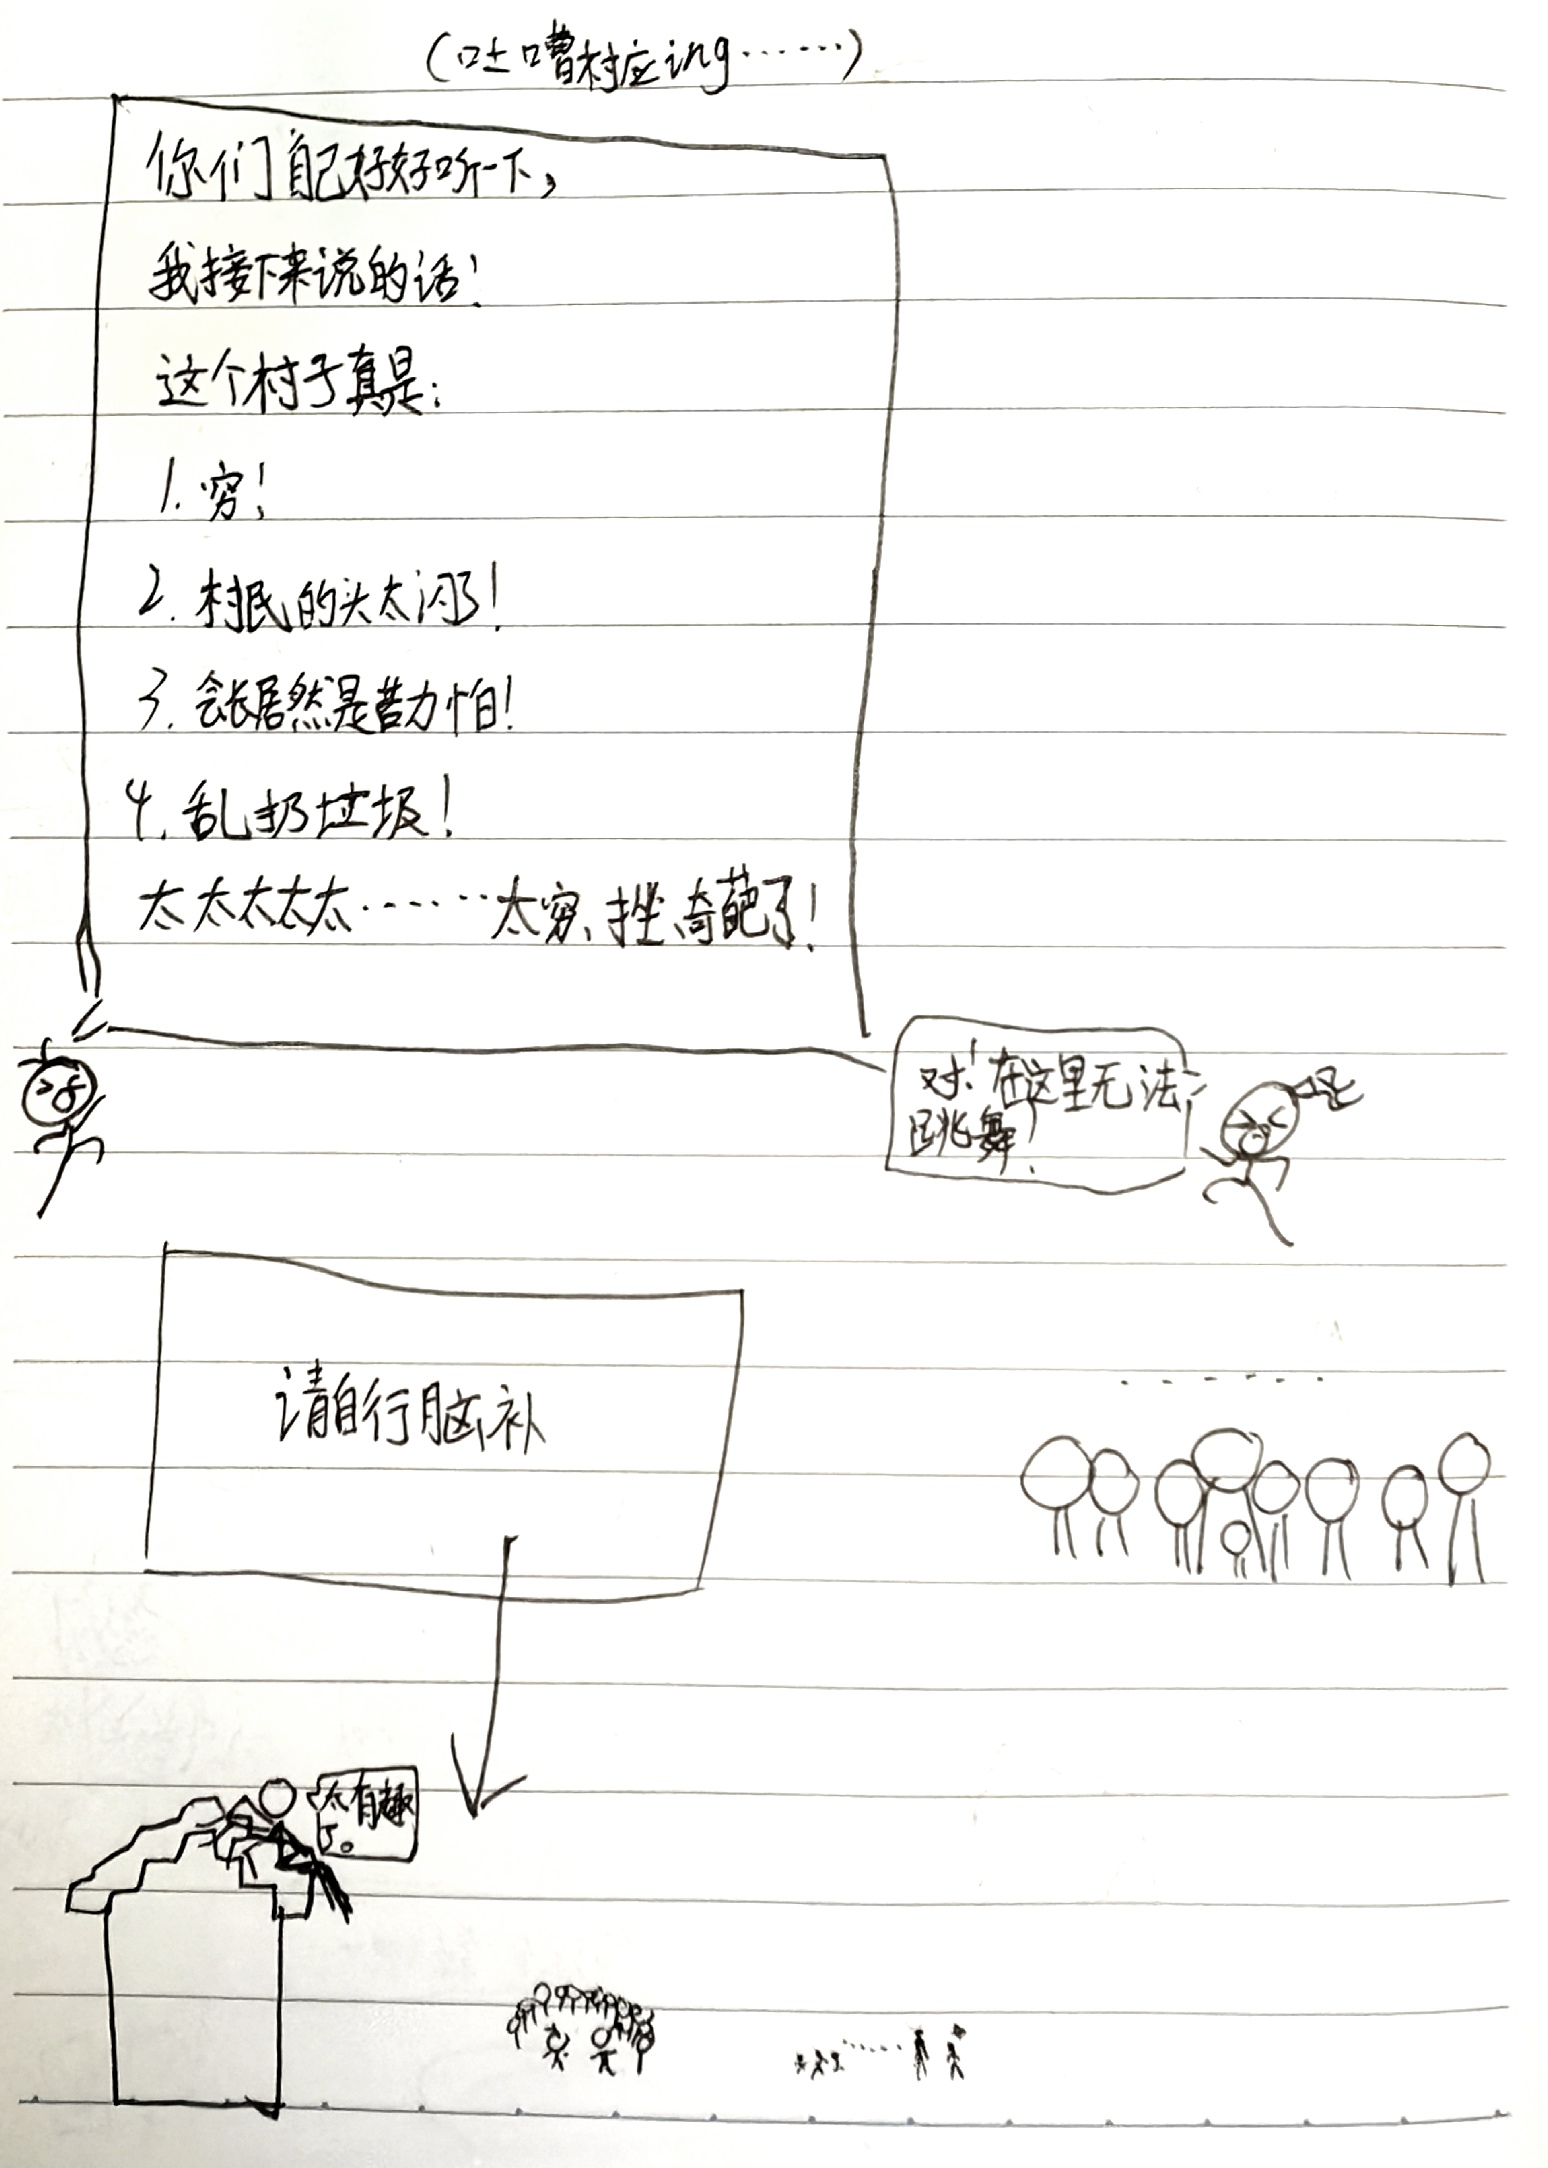 (吐嘈村应ing……)
你们自己好好听一下，
我接下来说的话！
这个村子真是：
1. 穷！
2. 村民的头太闪了！
3. 会长居然是苦力怕！
4. 乱扔垃圾！
太太太太太……太穷、挫、奇葩了！
对！在这里无法
跳舞！
请自行脑补
太有趣
了。